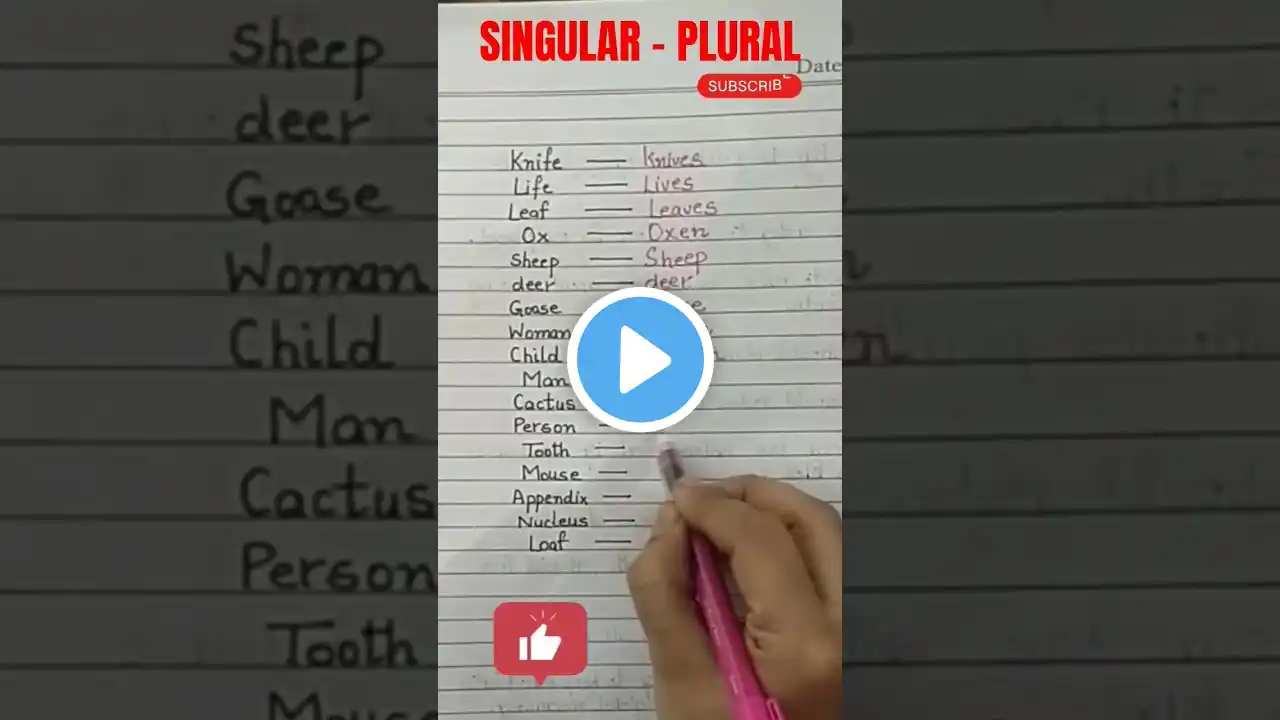 SINGULAR - PLURAL
Date
SUBSCRIBE
Knife — Knives
Life — Lives
Leaf — Leaves
Ox — Oxen
Sheep — Sheep
deer — deer
Goase
Woman
Child
Man
Cactus
Person —
Tooth —
Mouse —
Appendix —
Nucleus —
Loaf —
Sheep
deer
Goase
Woman
Child
Man
Cactus
Person
Tooth
Mouse